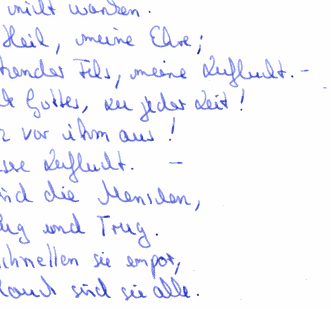 nicht wanken.
Heil, meine Ehre;
Fels, meine Zuflucht. –
Gottes, zu jeder Zeit!
vor ihm aus!
Zuflucht. –
sind die Menschen,
Lug und Trug.
schnellen sie empor,
Hauch sind sie alle.